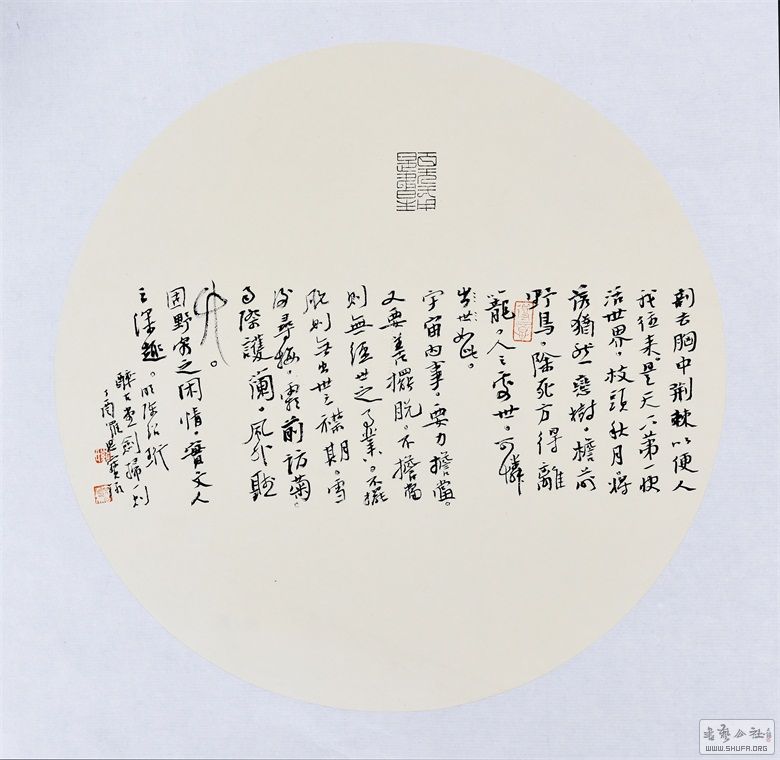 剗去胸中荆棘以便人
我往来。是天下第一快
活世界。枝頭秋月。將
落猶然戀樹。檐前
野鳥。除死方得離
籠。人之處世。可憐
如此。
宇宙内事。要力擔當。
又要善擺脱。不擔當
則無經世之事業。不擺
脱則無出世之襟期。雪
後尋梅。霜前訪菊。
雨際護蘭。風外聽
竹。
固野客之閑情。實文人
之深趣。明陸紹珩
醉古堂劍掃一則
書藝公社
WWW.SHUFA.ORG